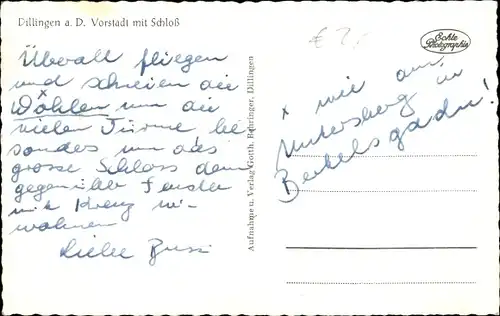 Dillingen a. D. Vorstadt mit Schloß
€ 2,-
Echte
Photographie
Überall fliegen
und schreien die
x
Dohlen um die
vielen Türme, be
sonders um das
grosse Schloss dem
gegenüber Fenster
mit Kreuz wi-
wohnen
Liebe
x wie am
Untersberg in
Berchtesgaden!
Aufnahme u. Verlag Gotth. Behringer, Dillingen